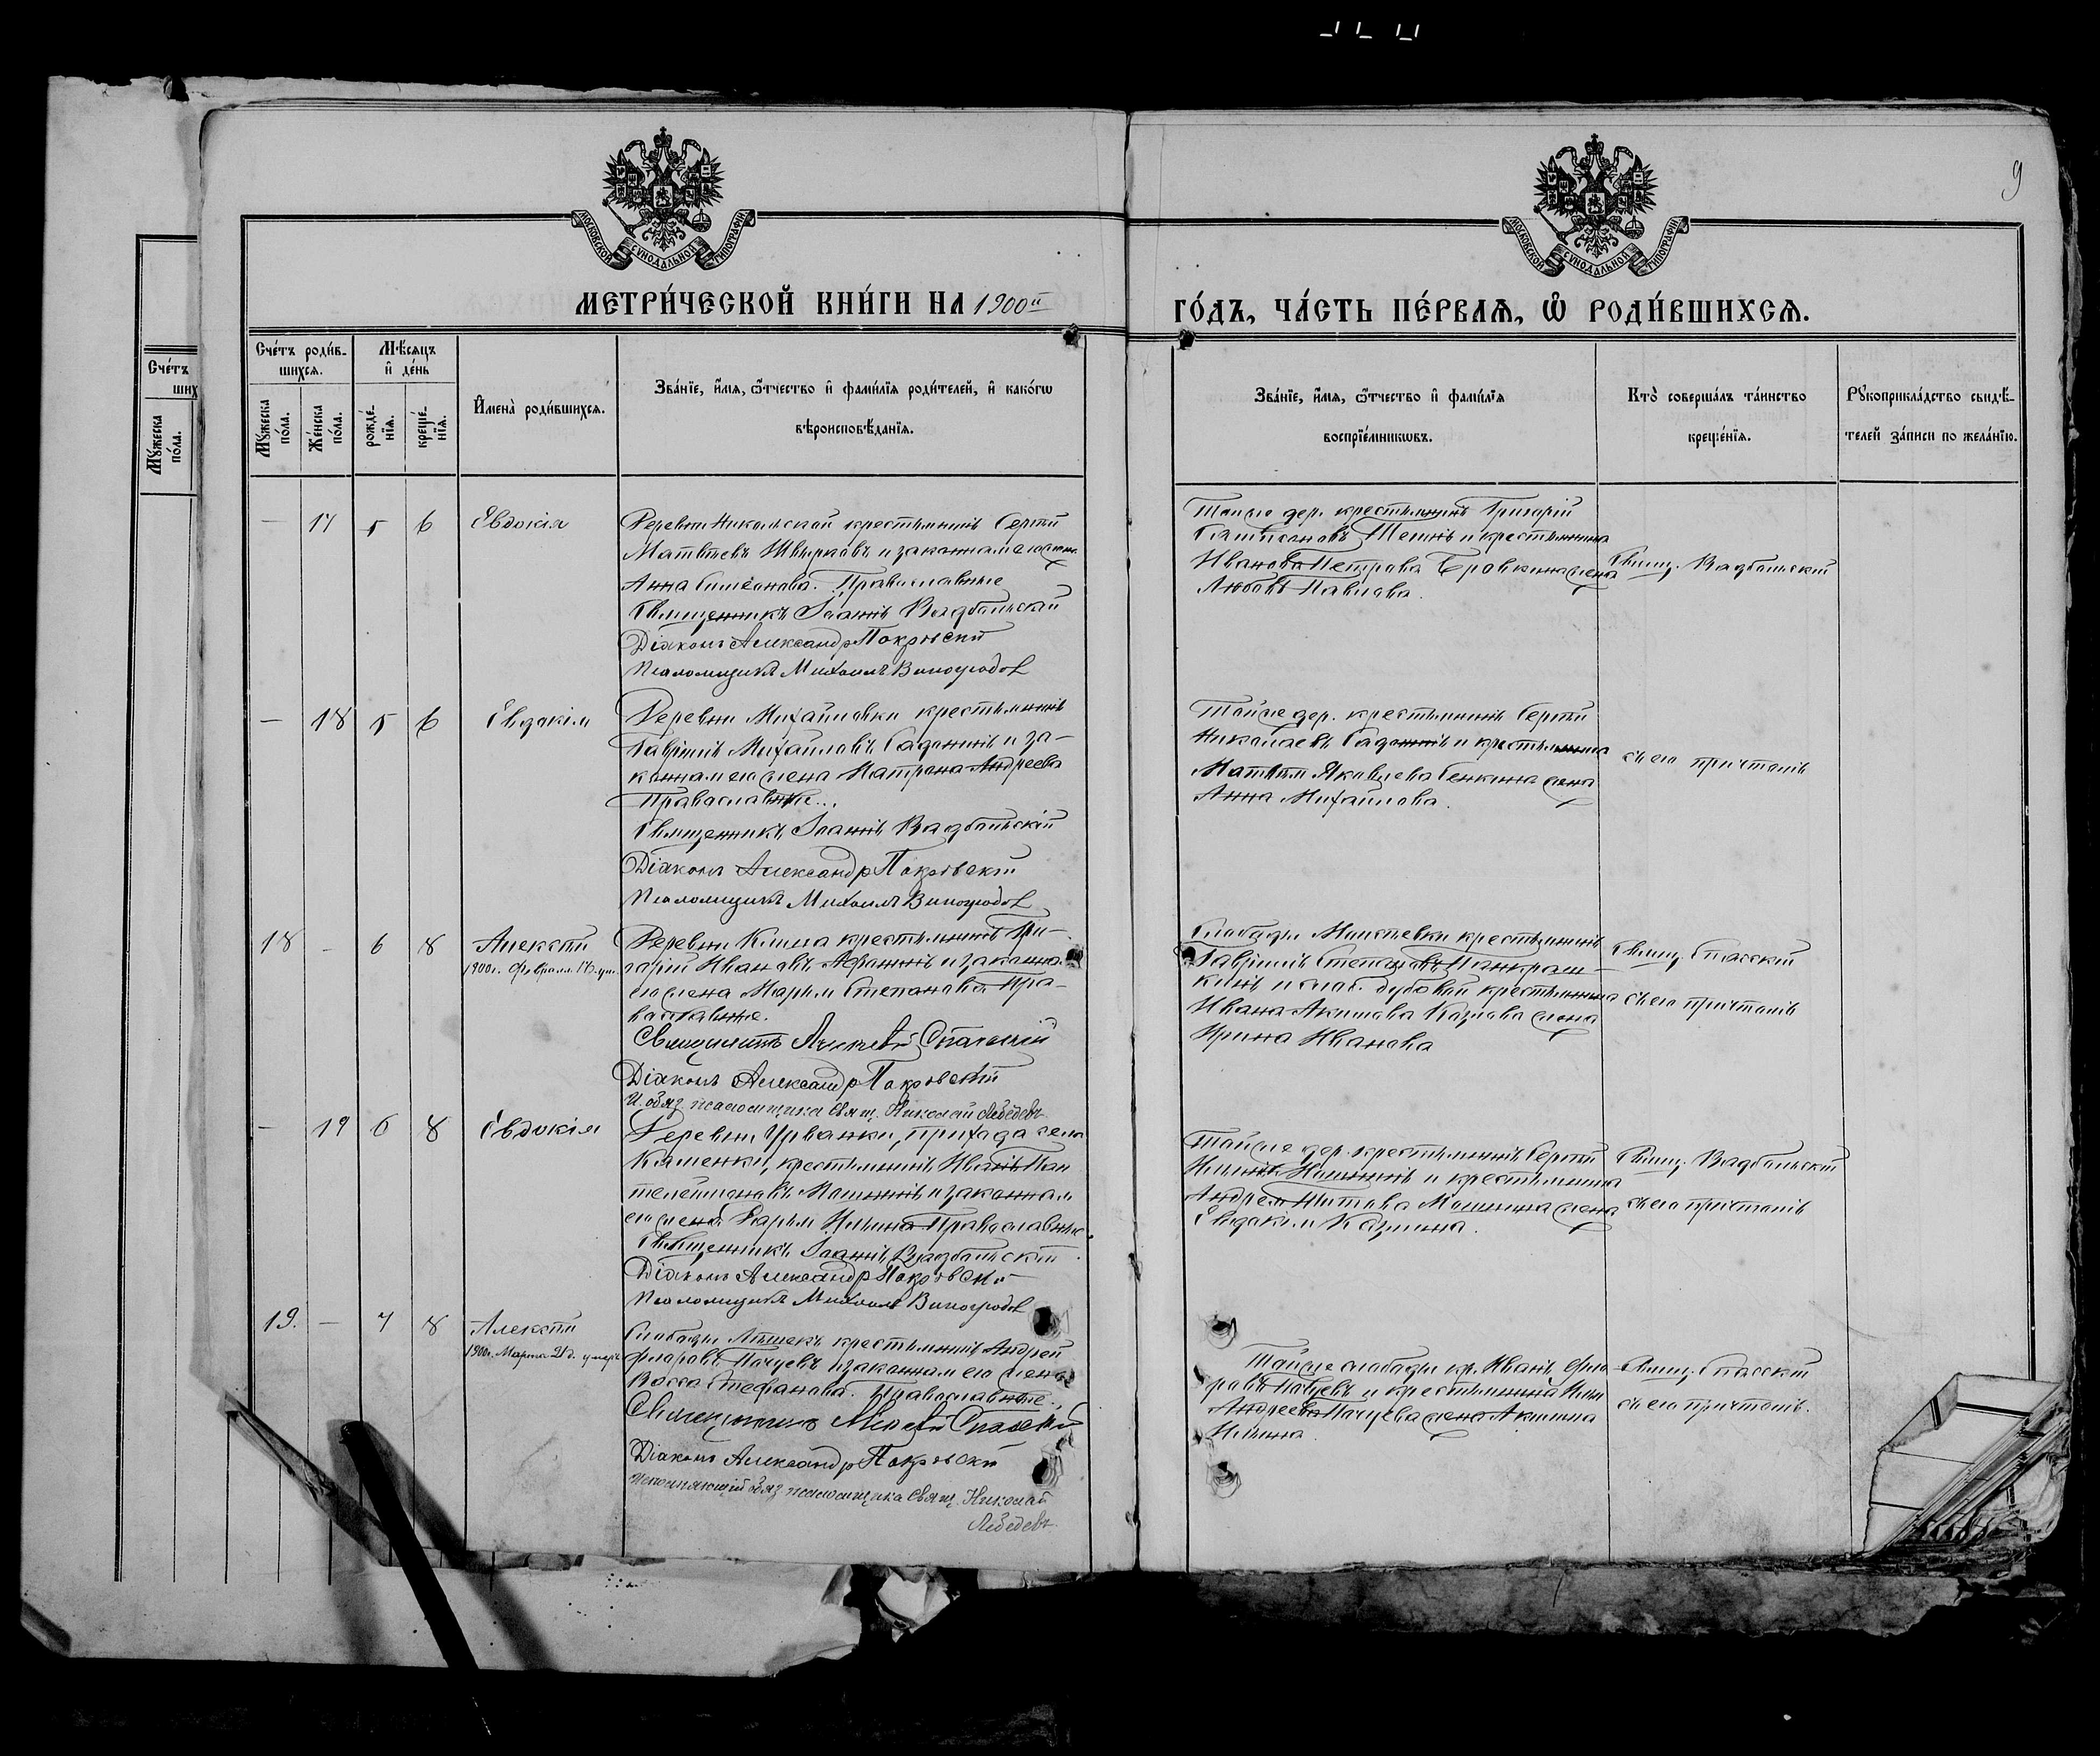 9
МОСКОВСКОЙ СѴНОДАЛЬНОЙ ТИПОГРАФІИ
МОСКОВСКОЙ СѴНОДАЛЬНОЙ ТИПОГРАФІИ
МЕТРИ́ЧЕСКОЙ КНИ́ГИ НА 1900й
ГО́ДЪ, ЧА́СТЬ ПЕ́РВАЯ, Ѡ РОДИ́ВШИХСЯ.
Сче́тъ
ших
Мꙋжеска по́ла.
Сче́тъ роди́в-
шихся.
Мꙋжеска по́ла.
Же́нска по́ла.
Мѣсяцъ
и де́нь
рожде́-
нїя.
креще́-
нїя.
Имена̀ роди́вшихся.
Зва́нїе, и́мя, ѻ҆́тчество и фами́лїя роди́телей, и како́гѡ
вѣроисповѣ́данїя.
Зва́нїе, и́мя, ѻ҆́тчество и фами́лїя
воспрїе́мникѡвъ.
Кто̀ соверша́лъ та́инство
креще́нїя.
Рꙋкоприкла́дство свидѣ́-
телей за́писи по жела́нїю.
— 17 5 6 Евдокія
Деревни Никольской крестьянинъ Сергѣй
Матвѣевъ Швырковъ и законная его жена
Анна Симеонова. Православные
Священникъ Іоаннъ Вадбольскій
Діаконъ Александр Покровскій
Псаломщикъ Михаилъ Виноградов
Той же дер. крестьянинъ Григорій
и крестьянина
Иванова Петрова Бровкина жена
Любовь Павлова.
Свящ. Вадбольскій
— 18 5 6 Евдокія
Деревни Михайловки крестьянинъ
Гавріилъ Михайловъ и за-
конная его жена Матрона Андреева
Православные.
Священникъ Іоаннъ Вадбольскій
Діаконъ Александр Покровскій
Псаломщикъ Михаилъ Виноградов
Той же дер. крестьянинъ Сергѣй
Николаевъ и крестьянина
Матвѣя Яковлева Сенкина жена
Анна Михайлова.
съ его причтомъ
18 — 6 8 Алексѣй
1900г. Февраля
Деревни крестьянинъ Гри-
горій Ивановъ и законная
его жена Марья Степанова Пра-
вославные.
Священникъ Алексѣй Спасскій
Діаконъ Александр Покровскій
И. обяз. псаломщика Свящ. Николай Лебедевъ
Слободы крестьянинъ
Гавріилъ Степановъ Панкраш-
кинъ и слоб. Дубовой крестьянина
Ивана Акимова жена
Ирина Иванова
Свящ. Спасскій
съ его причтомъ
— 19 6 8 Евдокія
Деревни Урванки, прихода села
Каменки, крестьянинъ Иванъ Пан
телеймоновъ Мошнинъ и законная
его жена Дарья Ильина Православные
Священникъ Іоаннъ Вадбольскій
Діаконъ Александр Покровскій
Псаломщикъ Михаилъ Виноградов
Той же дер. крестьянинъ Сергѣй
и крестьянина
Андрея Титова жена
Евдокія
Свящ. Вадбольскій
съ его причтомъ
19. — 7 8 Алексѣй
1900г. Марта 21 д. умеръ
Слободы крестьянинъ Андрей
Фларовъ Пачуевъ и законная его жена
Васса Стефанова. Православные.
Священникъ Алексѣй Спасскій
Діаконъ Александр Покровскій
Исполняющій обяз. псаломщика Свящ. Николай
Лебедевъ.
Той же слободы кр. Иванъ Фла-
ровъ Пачуевъ и крестьянина
Андреева Пачуева жена Акилина
Ильина.
Свящ. Спасскій
съ его причтомъ.